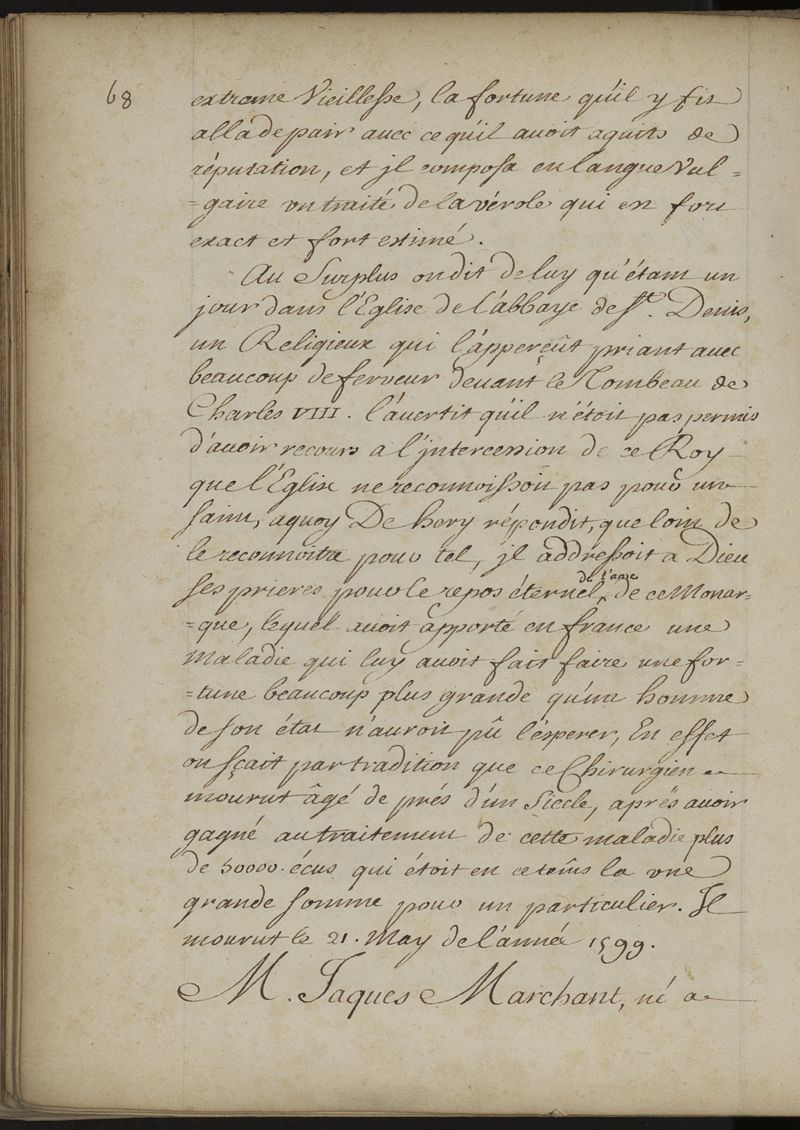 68
extrame Vieillesse, la fortune qu'il y fit
alla de pair avec ce qu'il avoit aquits de
réputation, et jl composa en langue Vul=
=gaire un traité de la vérole qui est fort
exact et fort estimé.
Au Surplus on dit de luy qu'étant un
jour dans l'Eglise de l'abbaye de St. Denis,
un Religieux qui l'apperçeût priant avec
beaucoup de ferveur devant le Tombeau de
Charles VIII. l'avertit qu'il n'étoit pas permis
d'avoir recours a l'jntercession de ce Roy
que l'Eglise ne reconnoissoit pas pour un
saint, aquoy De hery répondit, que loin de
le reconnoitre pour tel, jl addressoit a Dieu
ses prieres pour le repos éternel de l'ame de ce Monar=
=que, lequel avoit apporté en france une
maladie qui luy avoit fait faire une for=
=tune beaucoup plus grande qu'un homme
de son état n'auroit pû l'esperer, En effet
on sçait par tradition que ce Chirurgien
mourut âgé de prés d'un Siecle, aprés avoir
gagné au traitement de cette maladie plus
de 50000. écus qui étoit en ce tems la une
grande somme pour un particulier. Il
mourut le 21. May de l'année 1599.
M. Jaques Marchant, né a